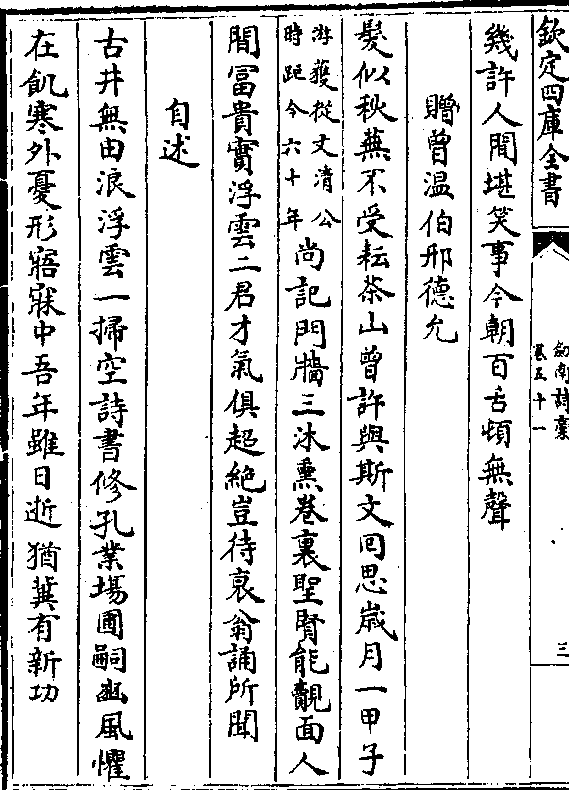 欽定四庫全書
劍南詩藁
卷五十一
三
幾許人間堪笑事今朝百舌頓無聲
贈曾温伯邢德允
髮似秋蕪不受耘茶山曾許與斯文囘思嵗月一甲子
游獲從文清公
時距今六十年
尚記門牆三沐熏卷裏聖賢能覿面人
間富貴實浮雲二君才氣俱超絶豈待衰翁誦所聞
自述
古井無由浪浮雲一掃空詩書修孔業場圃嗣豳風懼
在飢寒外憂形寤寐中吾年雖日逝猶冀有新功